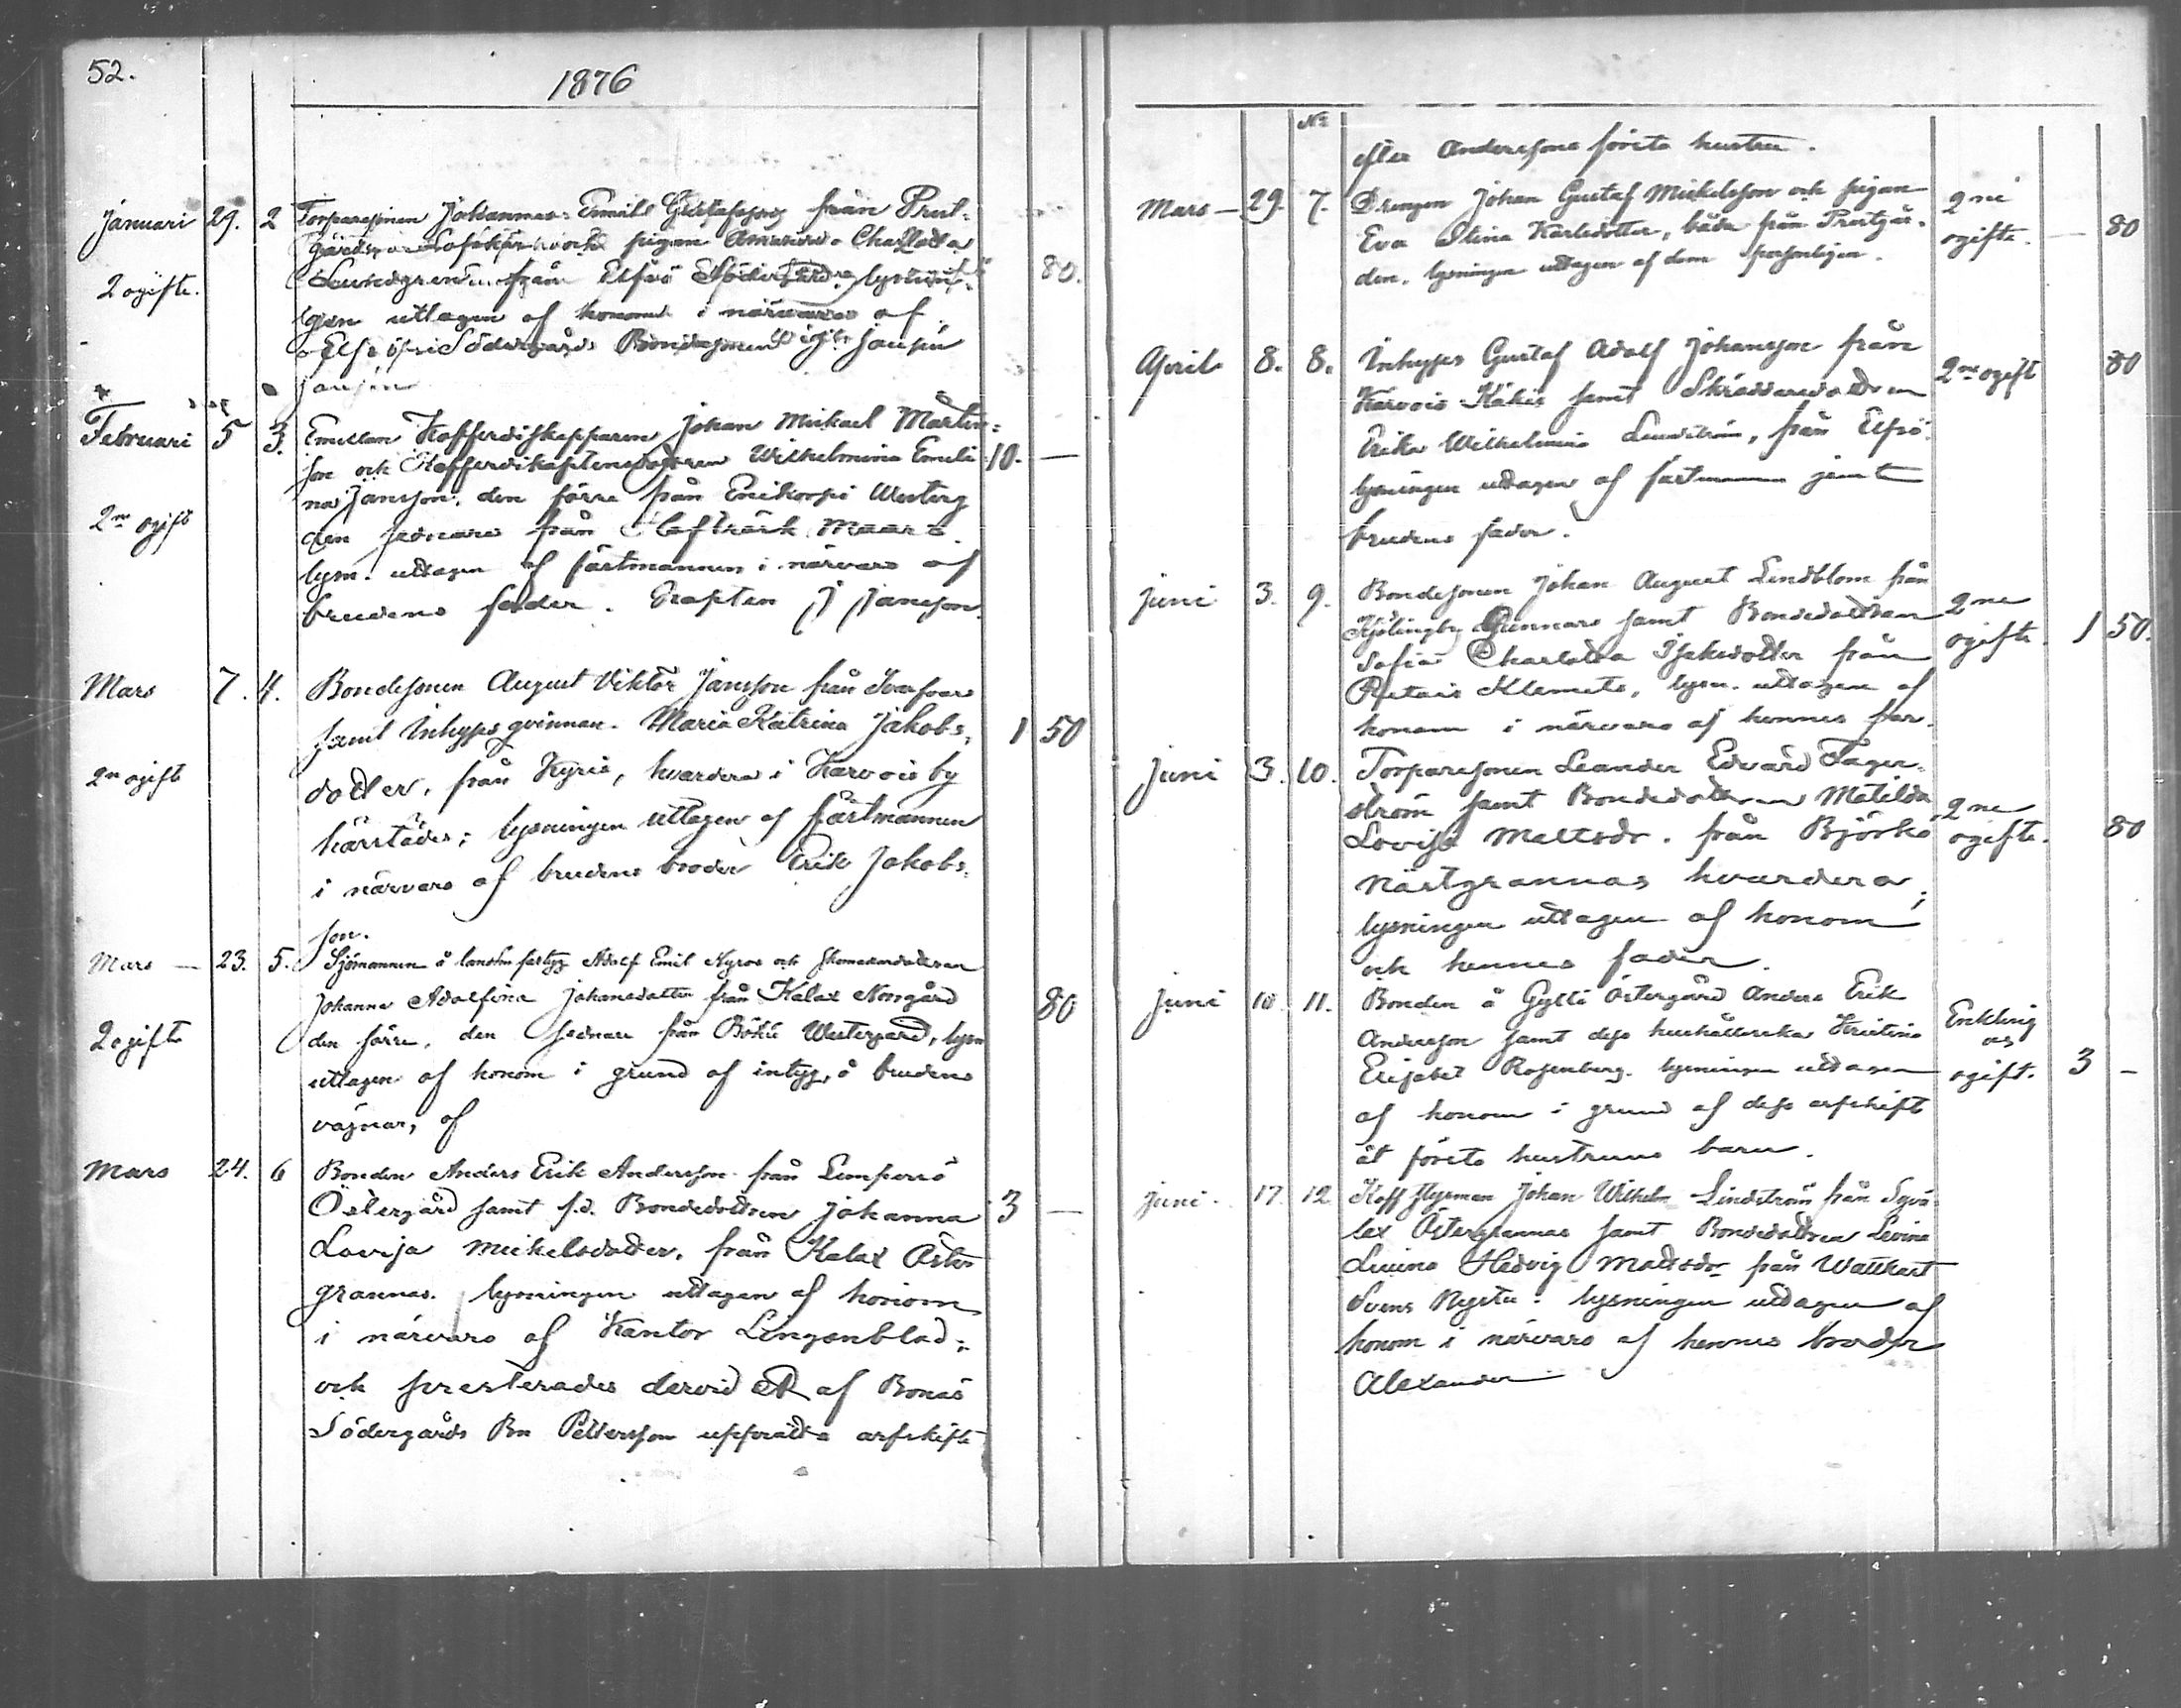 52.
1876
Januari 29. 2 Torparesonen Johannes Emil Gustafsson från Prest-
gårds och pigan Amanda Charlotta
från Elfsö Södergård, lysnin- 80.
2 ogifte.
gen uttagen af honom i närvaro af
Elfsö Södergårds Bondesonen Jansson
Jansson
Februari 5 3. Enklan Kofferdiskepparen Johan Mickael Martin-
son och Kofferdikaptensdottren Wilhelmina Emeli- 10. —
na Jansson, den förre från Westerg
2ne ogift
den sednare från
lysn. uttagen af fästmannen i närvaro af
brudens fader. Kapten J Jansson.
Mars 7. 4. Bondesonen August Viktor Jansson från
samt Inhyses qvinnan Maria Katrina Jakobs- 1 50
2ne ogift
dotter, från Kyris, hvardera i Karvois by
härstädes; lysningen uttagen af fästmannen
i närvaro af brudens broder Erik Jakobs-
son.
Mars — 23. 5. Sjömannen å fartyg Adolf Emil Nyroos och Skomakaredottren
Johanna Adolfina Johansdotter från Kalax Norrgård 80
2 ogifte
den förre, den sednare från Böhle Westergård, lysn
uttagen af honom i grund af intyg, å brudens
vägnar, af
Mars 24. 6 Bonden Anders Erik Andersson från Lempersö
Östergård samt f.d. Bondedottren Johanna 3 —
Lovisa Mickelsdotter, från Kalax Öster
grannas. lysningen uttagen af honom
i närvaro af Kantor Lingonblad;
och presterades dervid ett af Bonäs
Södergårds Bn Pettersson upprättadt arfskifte
No
efter Anderssons första hustru.
Mars — 29. 7. Drengen Johan Gustaf Mickelsson och pigan 2ne
Eva Stina Karlsdotter, båda från Prestgår- ogifte. — 80
den, lysningen uttagen af dem personligen.
April 8. 8. Inhyses Gustaf Adolf Johansson från
Karvois Käkis samt Skräddaredottren 2ne ogift 80
Erika Wilhelmina Lundström, från Elfsö
lysningen uttagen af fästmannen jemte
brudens fader.
Juni 3. 9. Bondesonen Johan August Lindblom från
Gunnars samt Bondedottren 2ne
Sofia Charlotta Isaksdotter från ogifte. 1 50.
Klemets, lysn. uttagen af
honom i närvaro af hennes far.
Juni 3. 10. Torparesonen Leander Edvard Fager-
ström samt Bondedottren Matilda 2ne
Lovisa Mattsdr. från Björkö ogifte. 80
Nästgrannas hvardera;
lysningen uttagen af honom
och hennes fader.
Juni 10. 11. Bonden å Gylti Östergård Anders Erik
Andersson samt dess hushållerska Kristina Enkling
Elisabet Rosenberg. lysningen uttagen och ogift. 3 —
af honom i grund af dess arfskift
åt första hustruns barn.
Juni. 17. 12. Koff Styrman Johan Wilhelm Lindström från
lax Östergrannas samt Bondedottren Levina
Hedvig Mattsdr från Wattkast
Svens Nystu. lysningen uttagen af
honom i närvaro af hennes broder
Alexander